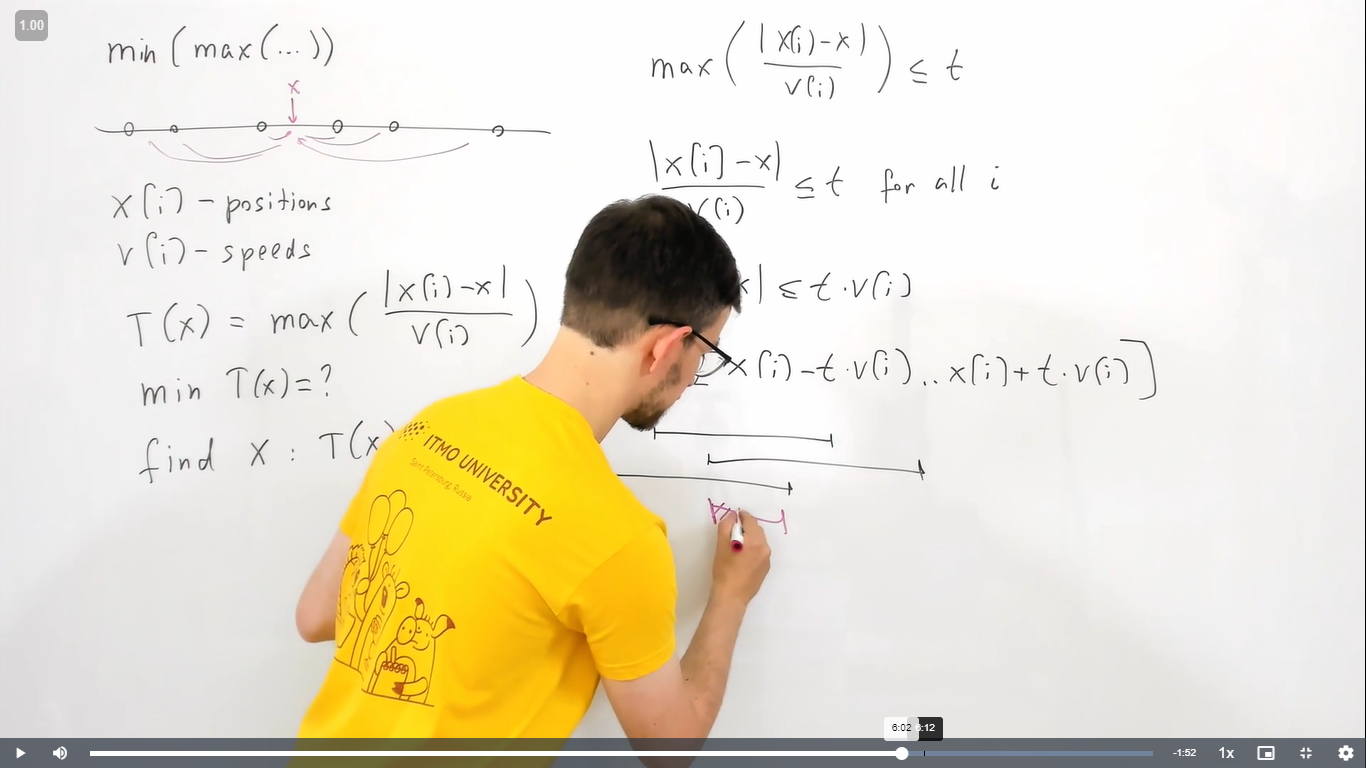 1.00
min (max(...))
x
x[i] - positions
v[i] - speeds
T(x) = max( |x[i]-x| / v[i] )
min T(x)=?
find x : T(x)
max( |x[i]-x| / v[i] ) ≤ t
|x[i]-x| / v[i] ≤ t for all i
x| ≤ t·v[i]
x[i]-t·v[i]..x[i]+t·v[i]]
ITMO UNIVERSITY
Saint Petersburg, Russia
6:02
:12
-1:52
1x